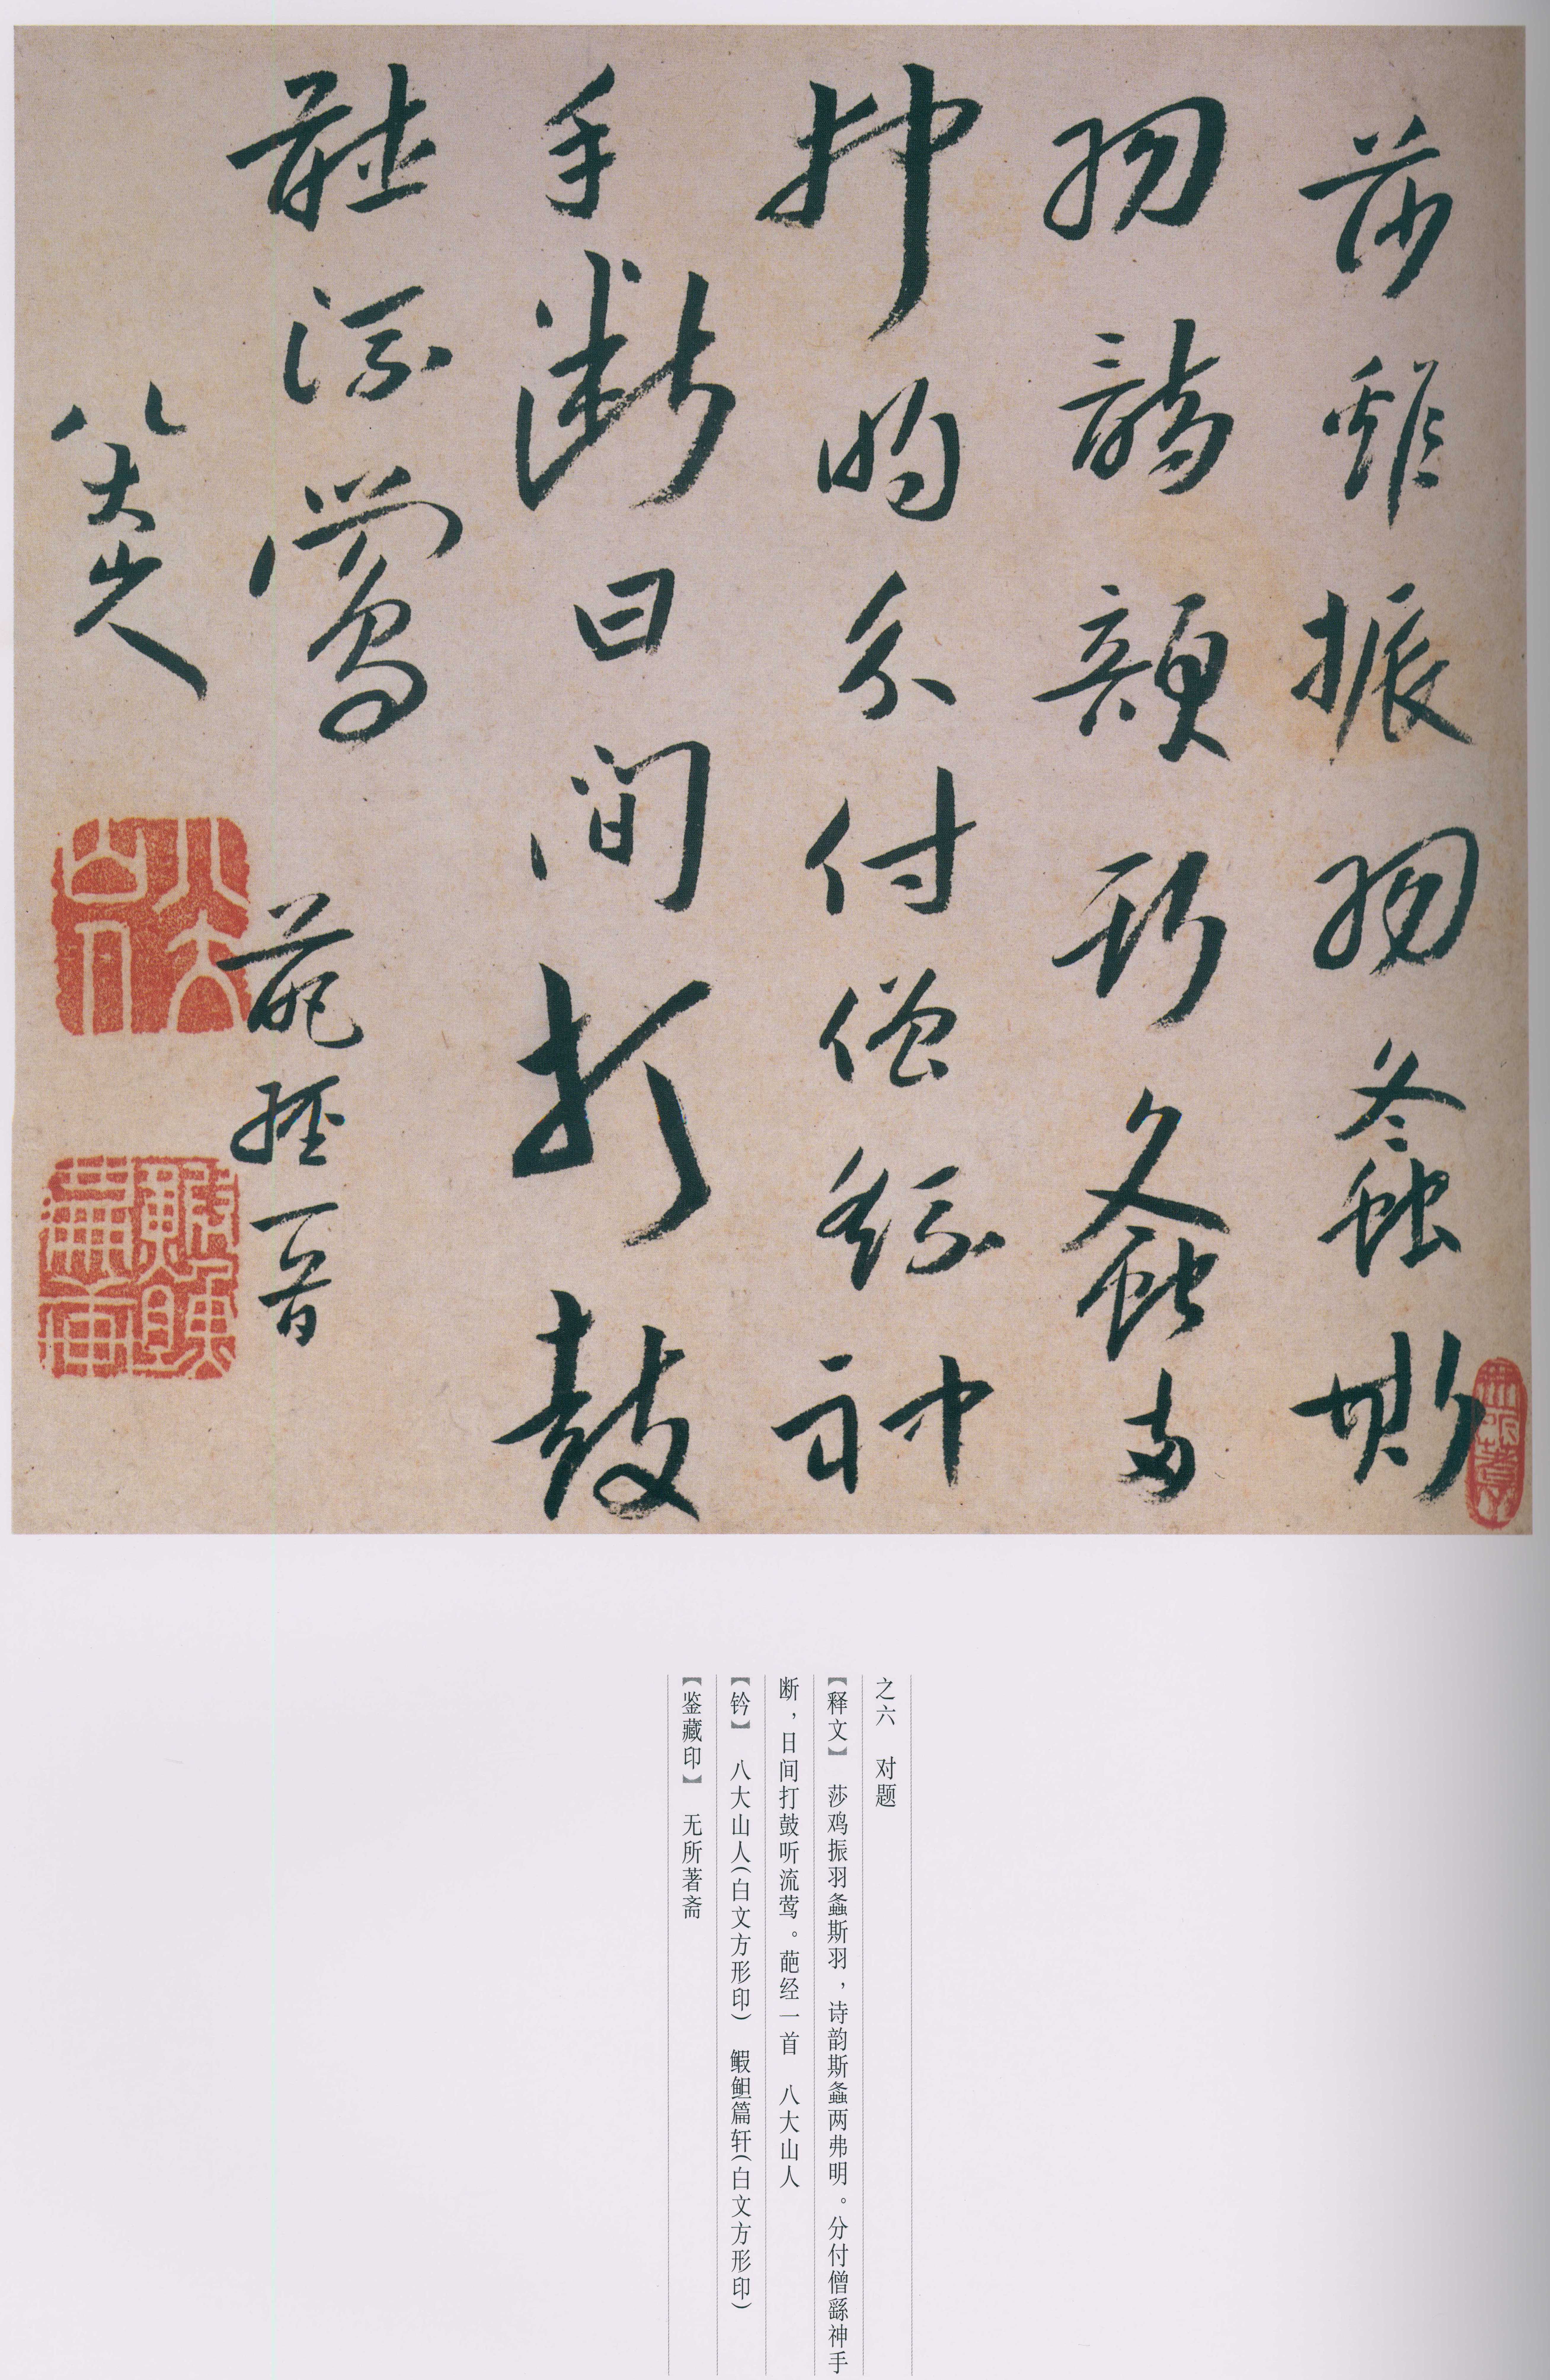 莎雞振羽螽斯
羽詩韻斯螽兩
弗明分付僧繇神
手斷日間打鼓
聽流鶯 葩經一首
八大山人
八大山人
之六 对题
【释文】 莎鸡振羽螽斯羽，诗韵斯螽两弗明。分付僧繇神手
断，日间打鼓听流莺。葩经一首 八大山人
【钤】 八大山人(白文方形印) 鰕䱇篇轩(白文方形印)
【鉴藏印】 无所著斋